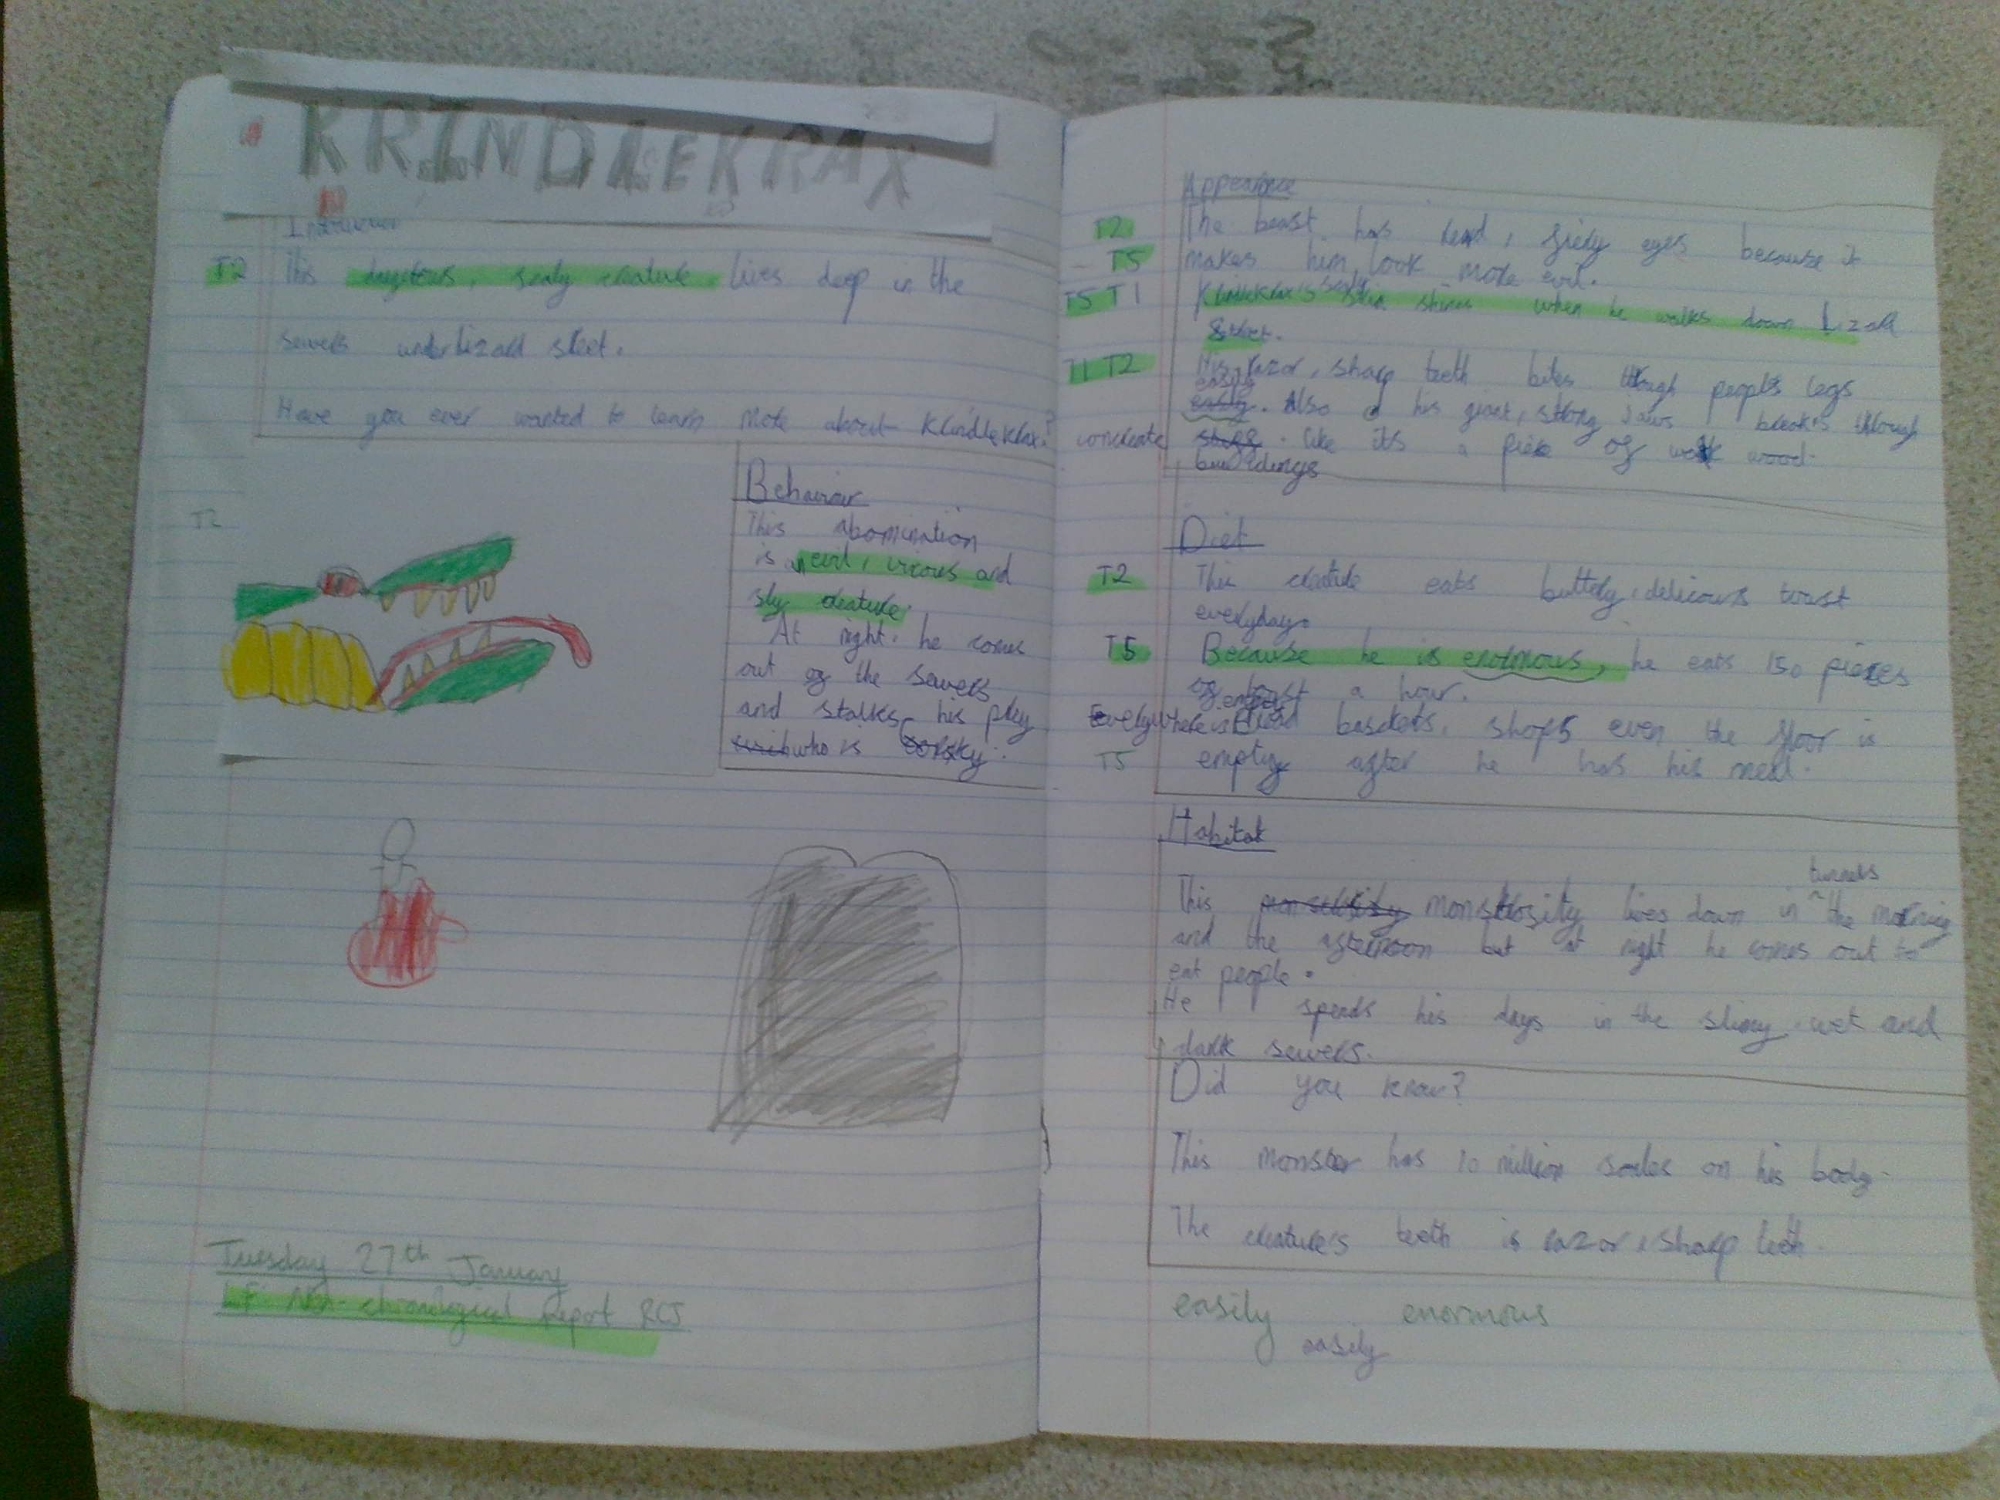 KRINDLEKRAX
T2 This scaly creature lives deep in the
sewers under Lizard street.
Have you ever wanted to learn more about Krindlekrax?
T2
Behaviour
This abomination
is an evil, vicious and
sly creature.
At night, he comes
out of the sewers
and stalks his prey
who is
Tuesday 27th January
LF Non-chronological report RCJ
Appearance
T2 The beast has read, firey eyes because it
T5 makes him look more evil.
T5 T1 Krindlekrax's scaly skin shines when he walks down Lizard
Street.
T1 T2 His razor, sharp teeth bites through people's legs
easily
easily. Also his giant, strong jaws breaks through
concreate stuff. like its a piece of wood.
buildings
Diet
T2 This creature eats buttery, delicious toast
everyday.
T5 Because he is enormous, he eats 150 pieces
of toast a hour.
Everywhere is empty baskets, shops even the floor is
T5 empty after he has his meal.
Habitat
tunnels
This monstrosity lives down in ^ the morning
and the afternoon but at night he comes out to
eat people.
He spends his days in the slimy, wet and
dark sewers.
Did you know?
This monster has 10 million scales on his body.
The creature's teeth is razor, sharp teeth.
easily enormous
easily